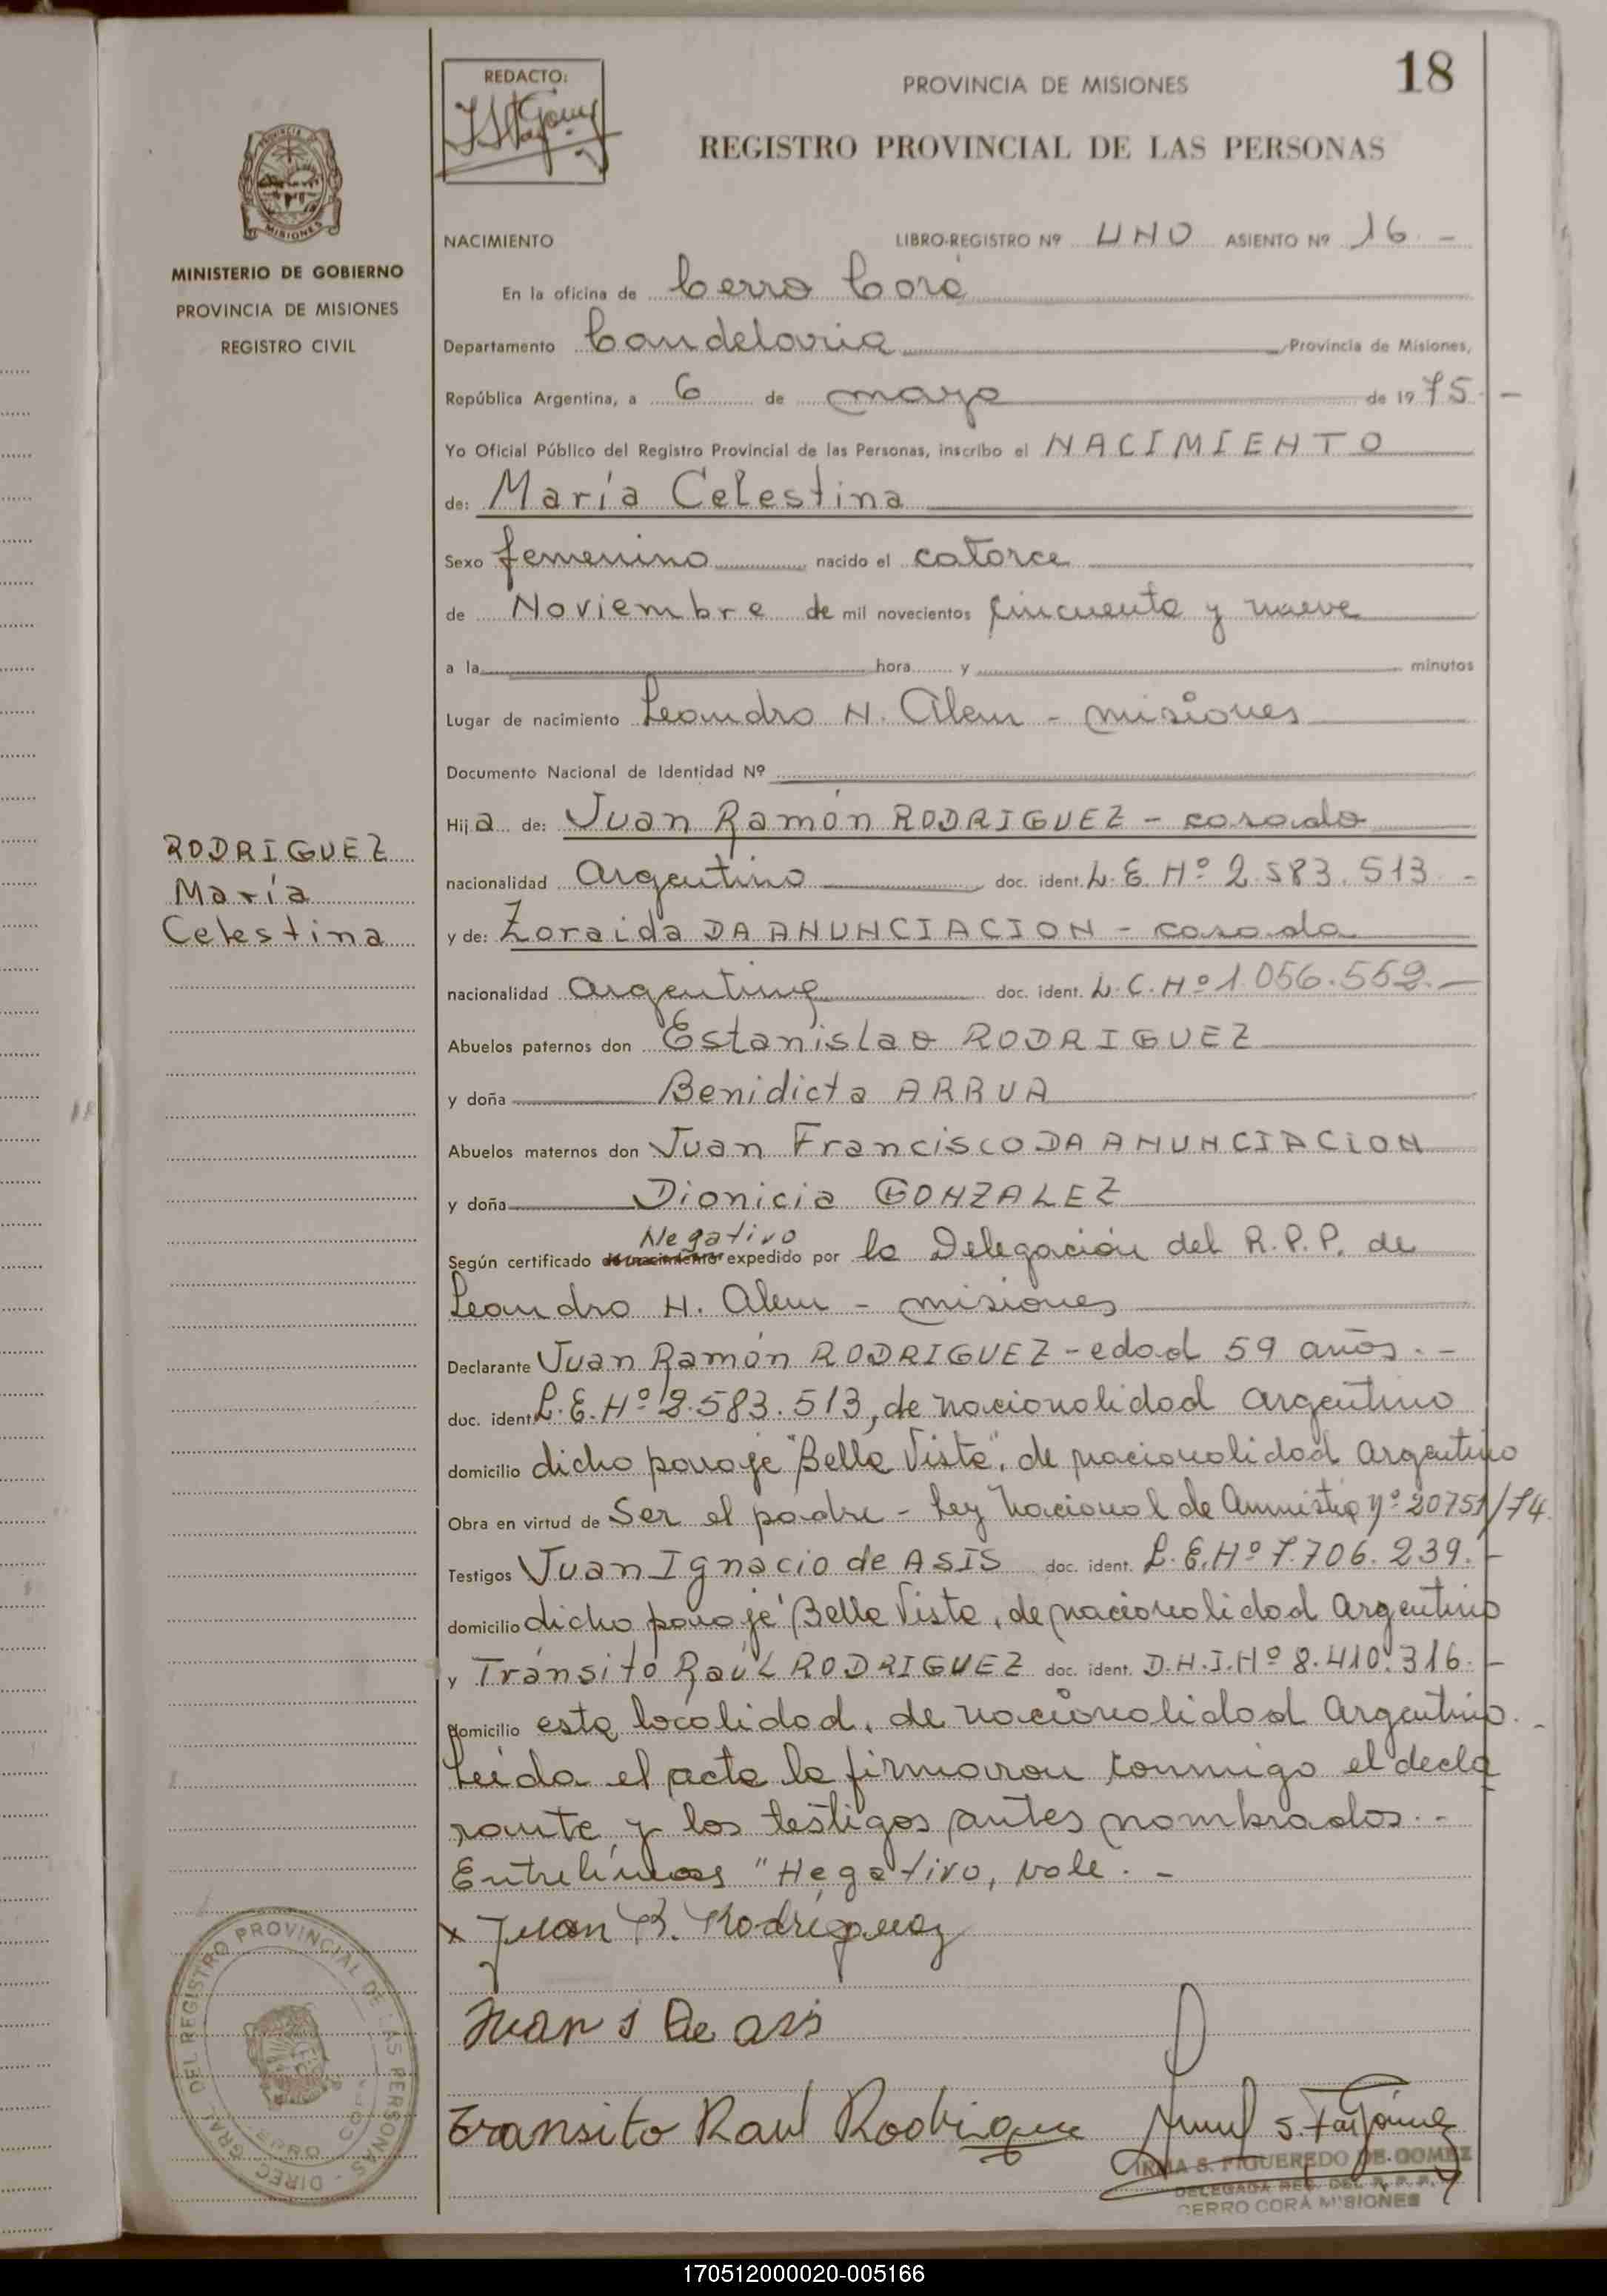 18
REDACTO:
PROVINCIA DE MISIONES
REGISTRO PROVINCIAL DE LAS PERSONAS
PROVINCIA DE
MISIONES
MINISTERIO DE GOBIERNO
PROVINCIA DE MISIONES
REGISTRO CIVIL
NACIMIENTO LIBRO-REGISTRO Nº UNO ASIENTO Nº 16 -
En la oficina de Cerro Corá
Departamento Candelaria Provincia de Misiones,
República Argentina, a 6 de mayo de 1975 -
Yo Oficial Público del Registro Provincial de las Personas, inscribo el NACIMIENTO
de: María Celestina
Sexo femenino nacido el catorce
de Noviembre de mil novecientos cincuenta y nueve
a la hora y minutos
Lugar de nacimiento Leandro N. Alem - misiones
Documento Nacional de Identidad Nº
Hija de: Juan Ramón RODRIGUEZ - casado
RODRIGUEZ
María
Celestina
nacionalidad Argentino doc. ident. L.E Nº 2.583.513 -
y de: Zoraida DA ANUNCIACION - casada
nacionalidad argentina doc. ident. L.C.Nº 1.056.552.-
Abuelos paternos don Estanislao RODRIGUEZ
y doña Benidicta ARRUA
Abuelos maternos don Juan Francisco DA ANUNCIACION
y doña Dionicia GONZALEZ
Negativo
Según certificado de nacimiento expedido por la Delegación del R.P.P. de
Leandro N. Alem - misiones
Declarante Juan Ramón RODRIGUEZ - edad 59 años. -
doc. ident. L.E.Nº 2.583.513, de nacionalidad argentino
domicilio dicho paraje "Bella Vista", de nacionalidad argentino
Obra en virtud de Ser el padre - Ley Nacional de Amnistía nº 20751/74
Testigos Juan Ignacio de ASIS doc. ident. L.E.Nº 7.706.239. -
domicilio dicho paraje "Bella Vista, de nacionalidad argentino
y Tránsito Raúl RODRIGUEZ doc. ident. D.N.I.Nº 8.410.316. -
domicilio esta localidad, de nacionalidad argentino. -
Leída el acta la firmaron conmigo el decla
rante y los testigos antes nombrados. -
Entrelíneas "Negativo, vale. -
x Juan R. Rodriguez
Juan I De asis
Transito Raul Rodriguez
IRMA S. FIGUEREDO DE GOMEZ
DELEGADA REG. DEL R. P. P.
CERRO CORA MISIONES
DIREC. GRAL. DEL REGISTRO PROVINCIAL DE LAS PERSONAS
CERRO CORA
170512000020-005166